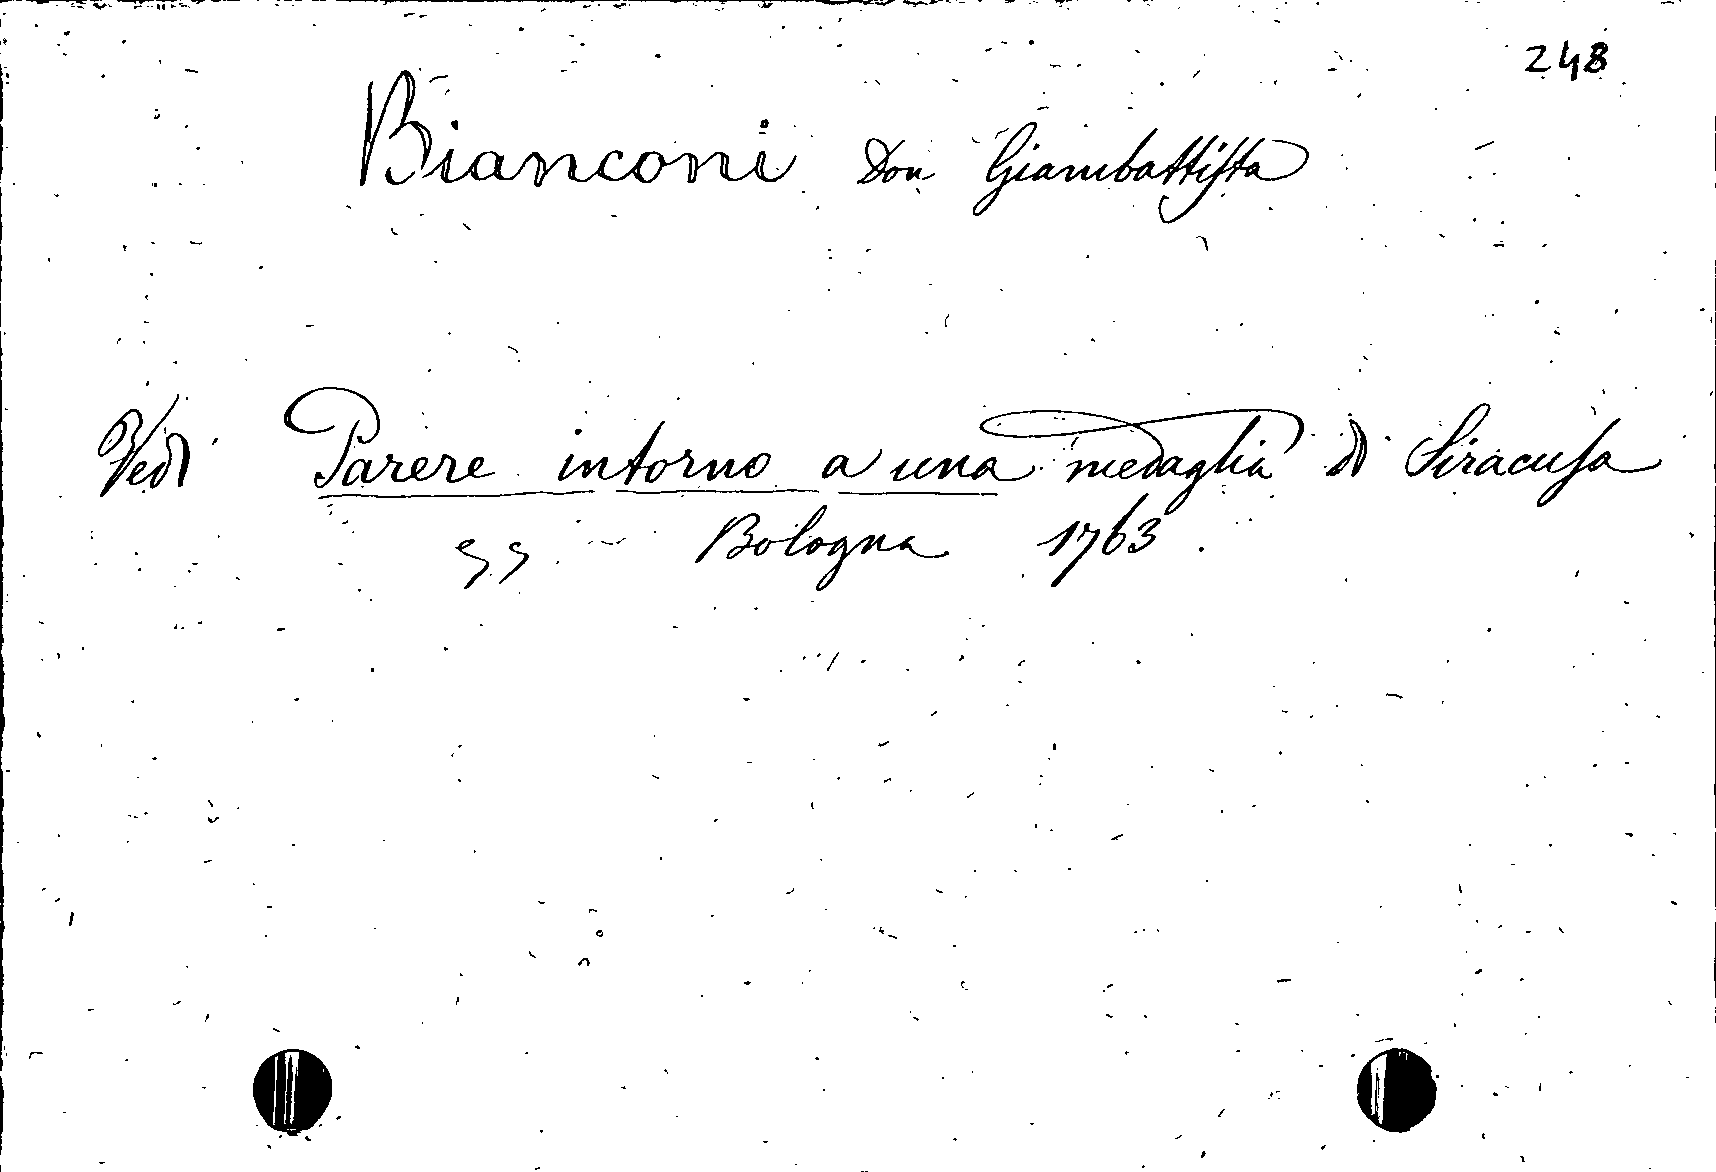 248
Bianconi Don Giambattista
Vedi Parere intorno a una medaglia di Siracusa
Bologna 1763.